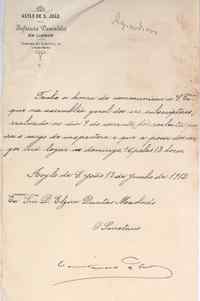 ASYLO DE S. JOÃO
Infancia Desvalida
EM LISBOA
Tenho a honra de communicar a V. Ex.ª
que na assembléa geral dos srs. subscriptores,
realisada no dia 9 do corrente, foi
para o cargo de inspectora e que a posse de
terá logar no domingo 16 pelas 13 horas.
Asylo de S. João 12 de Junho de 1912
Ex.ma Snr.ª D. Elzira Dantas Machado
O Secretario